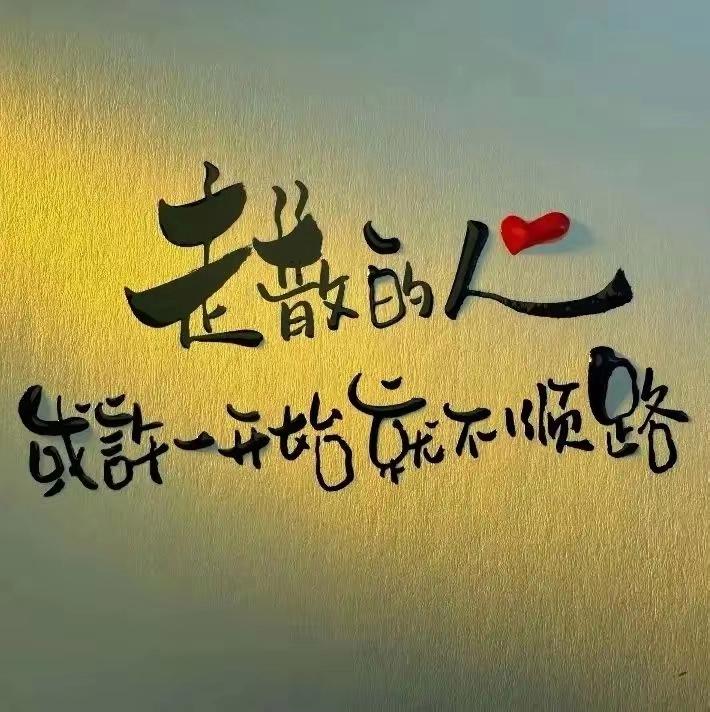 走散的人
或許一开始就不顺路